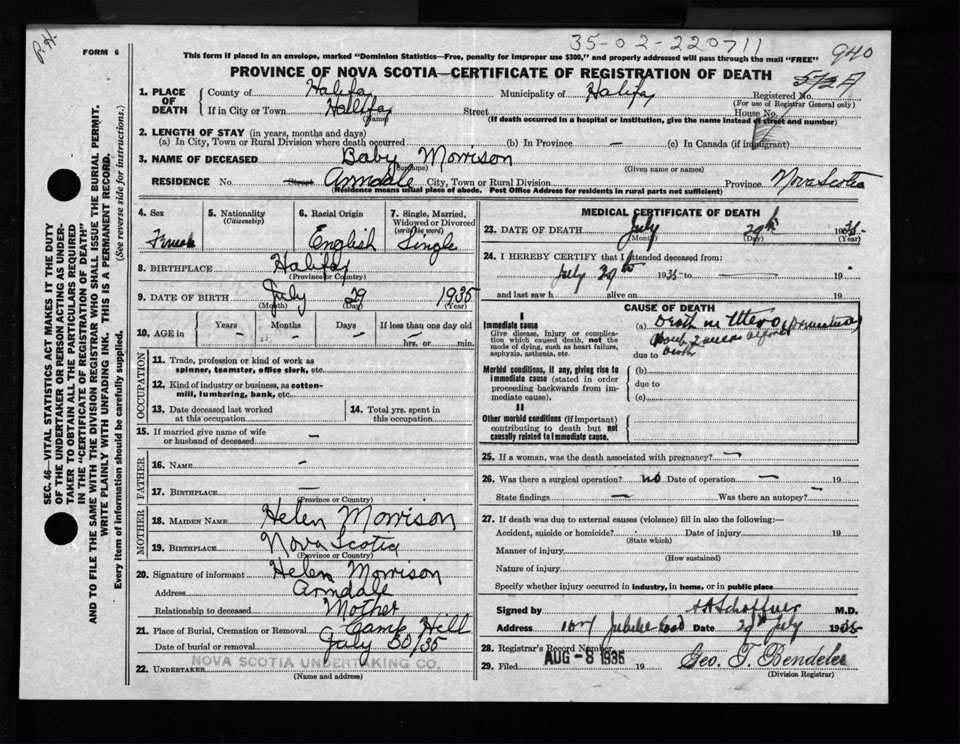 P.H.
FORM 6
35-02-220711
940
This form if placed in an envelope, marked "Dominion Statistics—Free, penalty for improper use $300," and properly addressed will pass through the mail "FREE"
PROVINCE OF NOVA SCOTIA—CERTIFICATE OF REGISTRATION OF DEATH
1. PLACE OF DEATH
County of Halifax Municipality of Halifax Registered No.
(For use of Registrar General only)
If in City or Town Halifax Street House No.
(Name) (If death occurred in a hospital or institution, give the name instead of street and number)
2. LENGTH OF STAY (in years, months and days)
(a) In City, Town or Rural Division where death occurred (b) In Province — (c) In Canada (if immigrant)
3. NAME OF DECEASED Baby Morrison
(Surname) (Given name or names)
RESIDENCE No. Street Armdale City, Town or Rural Division Province Nova Scotia
(Residence means usual place of abode. Post Office Address for residents in rural parts not sufficient)
SEC. 46—VITAL STATISTICS ACT MAKES IT THE DUTY
OF THE UNDERTAKER OR PERSON ACTING AS UNDER-
TAKER TO OBTAIN ALL THE PARTICULARS REQUIRED
IN THE "CERTIFICATE OF REGISTRATION OF DEATH"
AND TO FILE THE SAME WITH THE DIVISION REGISTRAR WHO SHALL ISSUE THE BURIAL PERMIT.
WRITE PLAINLY WITH UNFADING INK. THIS IS A PERMANENT RECORD.
Every item of information should be carefully supplied. (See reverse side for instructions.)
4. Sex 5. Nationality 6. Racial Origin 7. Single, Married,
(Citizenship) Widowed or Divorced
(write the word)
Female English Single
8. BIRTHPLACE Halifax
(Province or Country)
9. DATE OF BIRTH July 29 1935
(Month) (Day) (Year)
10. AGE in Years Months Days If less than one day old
- - - hrs. or min.
OCCUPATION
11. Trade, profession or kind of work as
spinner, teamster, office clerk, etc.
12. Kind of industry or business, as cotton-
mill, lumbering, bank, etc.
13. Date deceased last worked
at this occupation
14. Total yrs. spent in
this occupation
15. If married give name of wife
or husband of deceased —
FATHER
16. NAME -
17. BIRTHPLACE —
(Province or Country)
MOTHER
18. MAIDEN NAME Helen Morrison
19. BIRTHPLACE Nova Scotia
(Province or Country)
20. Signature of informant Helen Morrison
Address Armdale
Relationship to deceased Mother
21. Place of Burial, Cremation or Removal Camp Hill
Date of burial or removal July 30/35
22. UNDERTAKER NOVA SCOTIA UNDERTAKING CO.
(Name and address)
MEDICAL CERTIFICATE OF DEATH
23. DATE OF DEATH July 29th 1935
(Month) (Day) (Year)
24. I HEREBY CERTIFY that I attended deceased from:
July 29th 1935 to — 19
and last saw h alive on 19
CAUSE OF DEATH
I
Immediate cause
Give disease, injury or complica-
tion which caused death, not the
mode of dying, such as heart failure,
asphyxia, asthenia, etc.
(a) Death in Utero (Premature)
about 2 weeks before
due to birth
Morbid conditions, if any, giving rise to
immediate cause (stated in order
proceeding backwards from im-
mediate cause).
(b)
due to
(c)
II
Other morbid conditions (if important)
contributing to death but not
causally related to immediate cause.
25. If a woman, was the death associated with pregnancy? —
26. Was there a surgical operation? no Date of operation — 19
State findings — Was there an autopsy? —
27. If death was due to external causes (violence) fill in also the following:—
Accident, suicide or homicide? Date of injury 19
(State which)
Manner of injury
(How sustained)
Nature of injury
Specify whether injury occurred in industry, in home, or in public place
Signed by M.D.
Address Jubilee Road Date 29th July 1935
28. Registrar's Record Number
29. Filed AUG -8 1935 19 Geo. T. Bendeler
(Division Registrar)